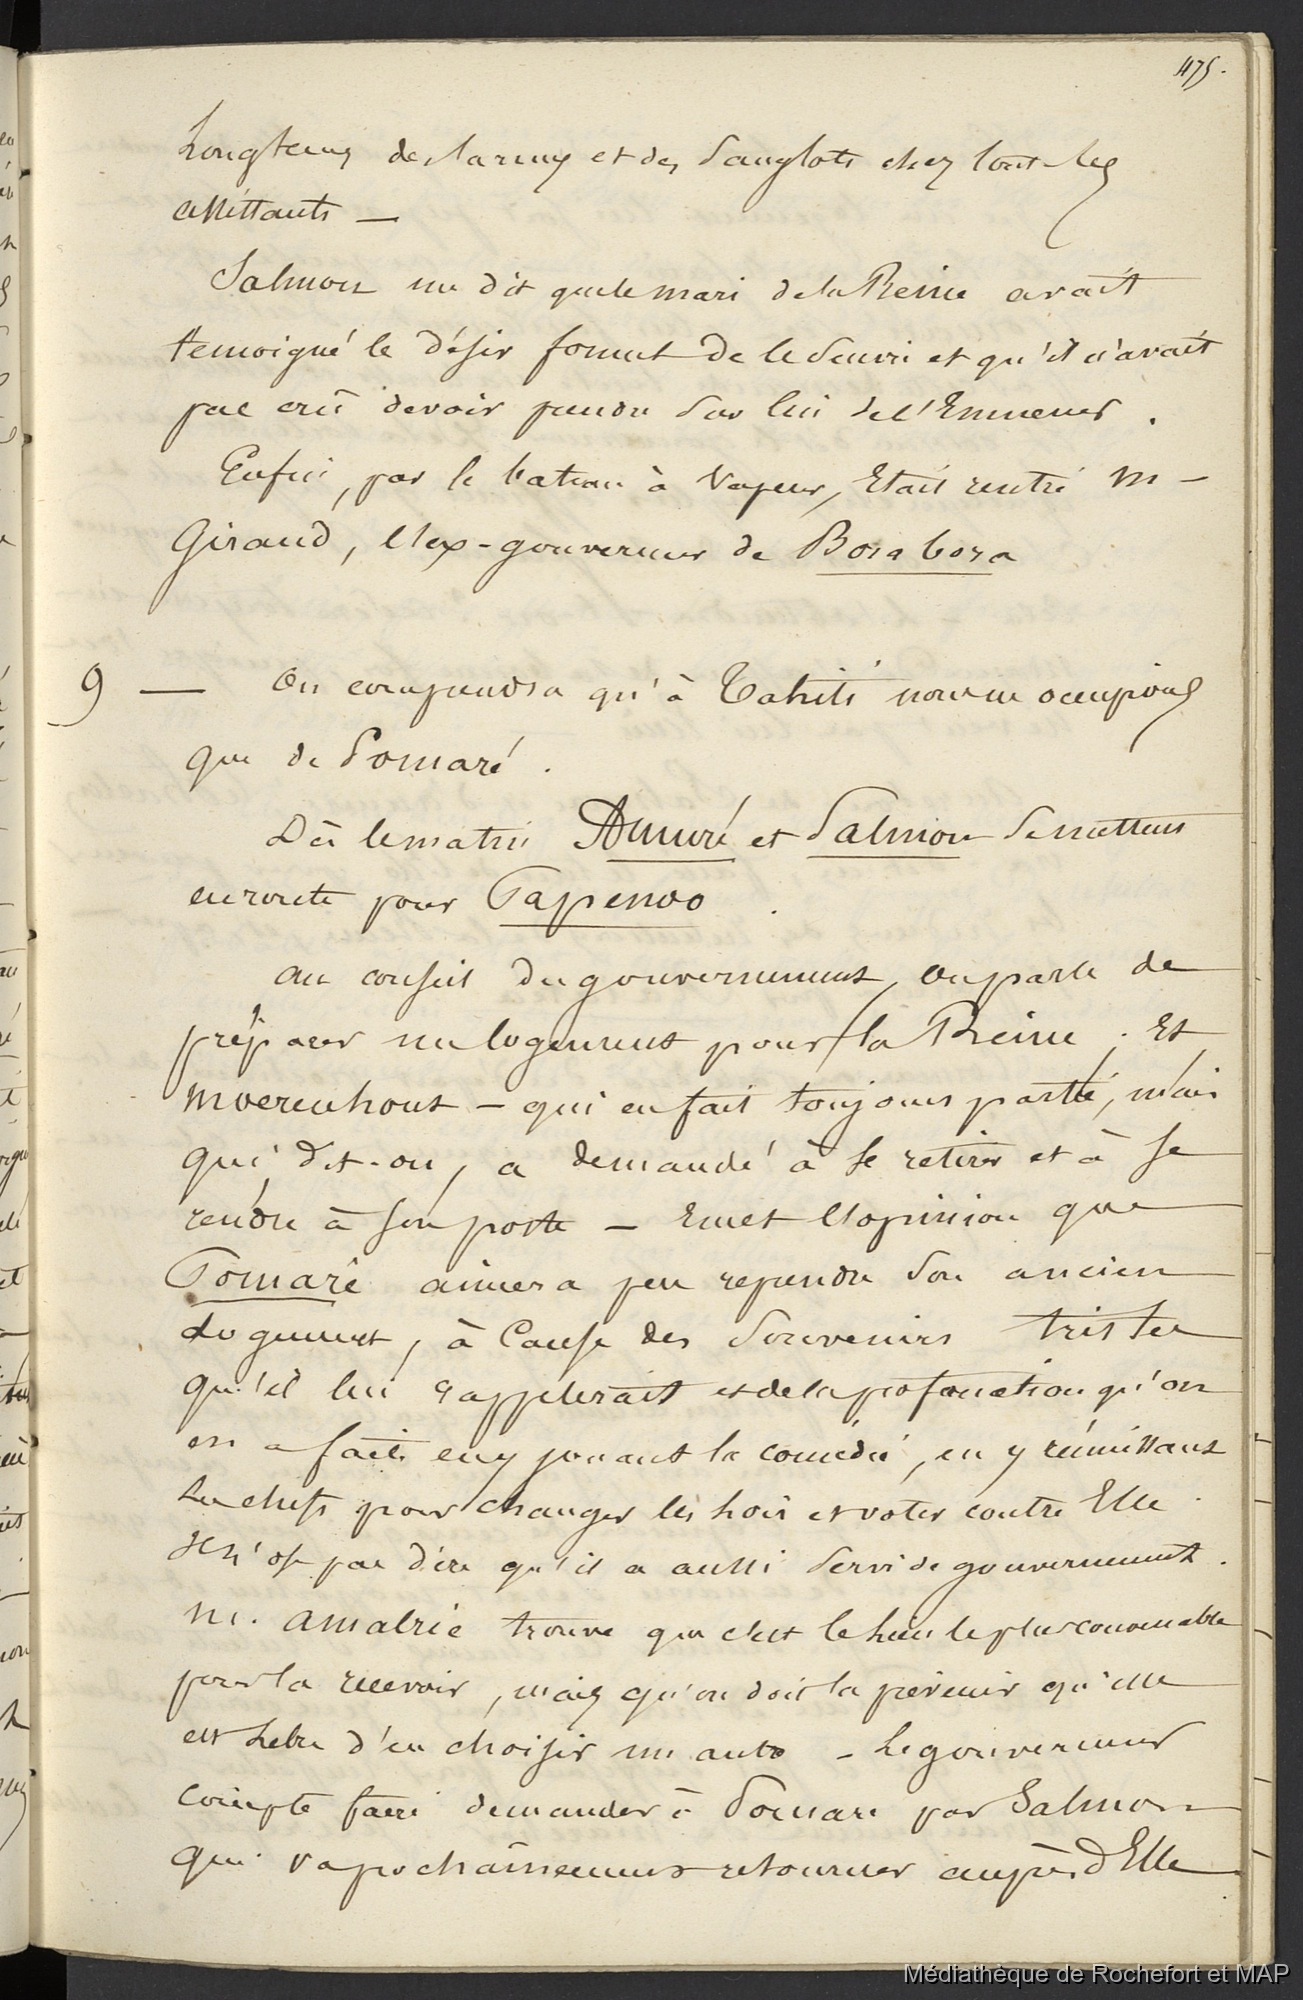 475.
Longtems des larmes et des sanglots chez tout les
assistants —
Salmon me dit que le mari de la Reine avait
temoigné le désir formel de le suivre et qu'il n'avait
pas crû devoir prendre sur lui de l'Emmener.
Enfin, par le bateau à Vapeur, Etait rentré M-
Giraud, l'ex-gouverneur de Borabora
9 — On comprendra qu'à Tahiti nous ne occupions
que de Pomaré.
Dès le matin et Salmon se mettent
en route pour Papenoo.
au conseil du gouvernement, on parle de
préparer un logement pour la Reine. Et
Moerenhout — qui en fait toujours partie, mais
qui, dit-on, a demandé à se retirer et à se
rendre à son poste — Emet l'opinion que
Pomaré aimera peu reprendre son ancien
logement, à cause des souvenirs tristes
qu'il lui rappelerait et de la profanation qu'on
en a faite en y jouant la comédie, en y réunissant
les chefs pour changer les lois et voter contre Elle.
Il n'ose pas dire qu'il a aussi servi de gouvernement.
M. Amalric trouve que c'est le lieu le plus convenable
pour la recevoir, mais qu'on doit la prévenir qu'elle
est libre d'en choisir un autre — Le gouverneur
compte faire demander à Pomaré par Salmon
qui va prochainement retourner auprès d'Elle
Médiathèque de Rochefort et MAP